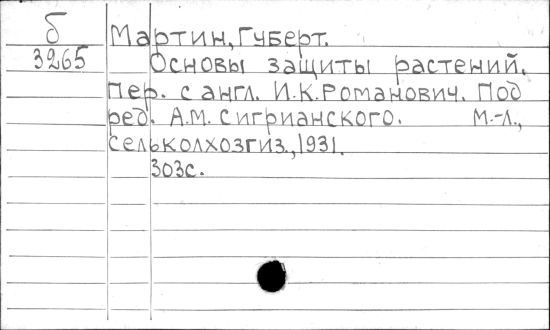 б
3265
Мартин, Губерт.
Основы защиты растений.
Пер. с англ. И.К.Романович. Под
ред. А.М. Сигрианского. М.-Л.,
Сельколхозгиз., 1931.
303с.